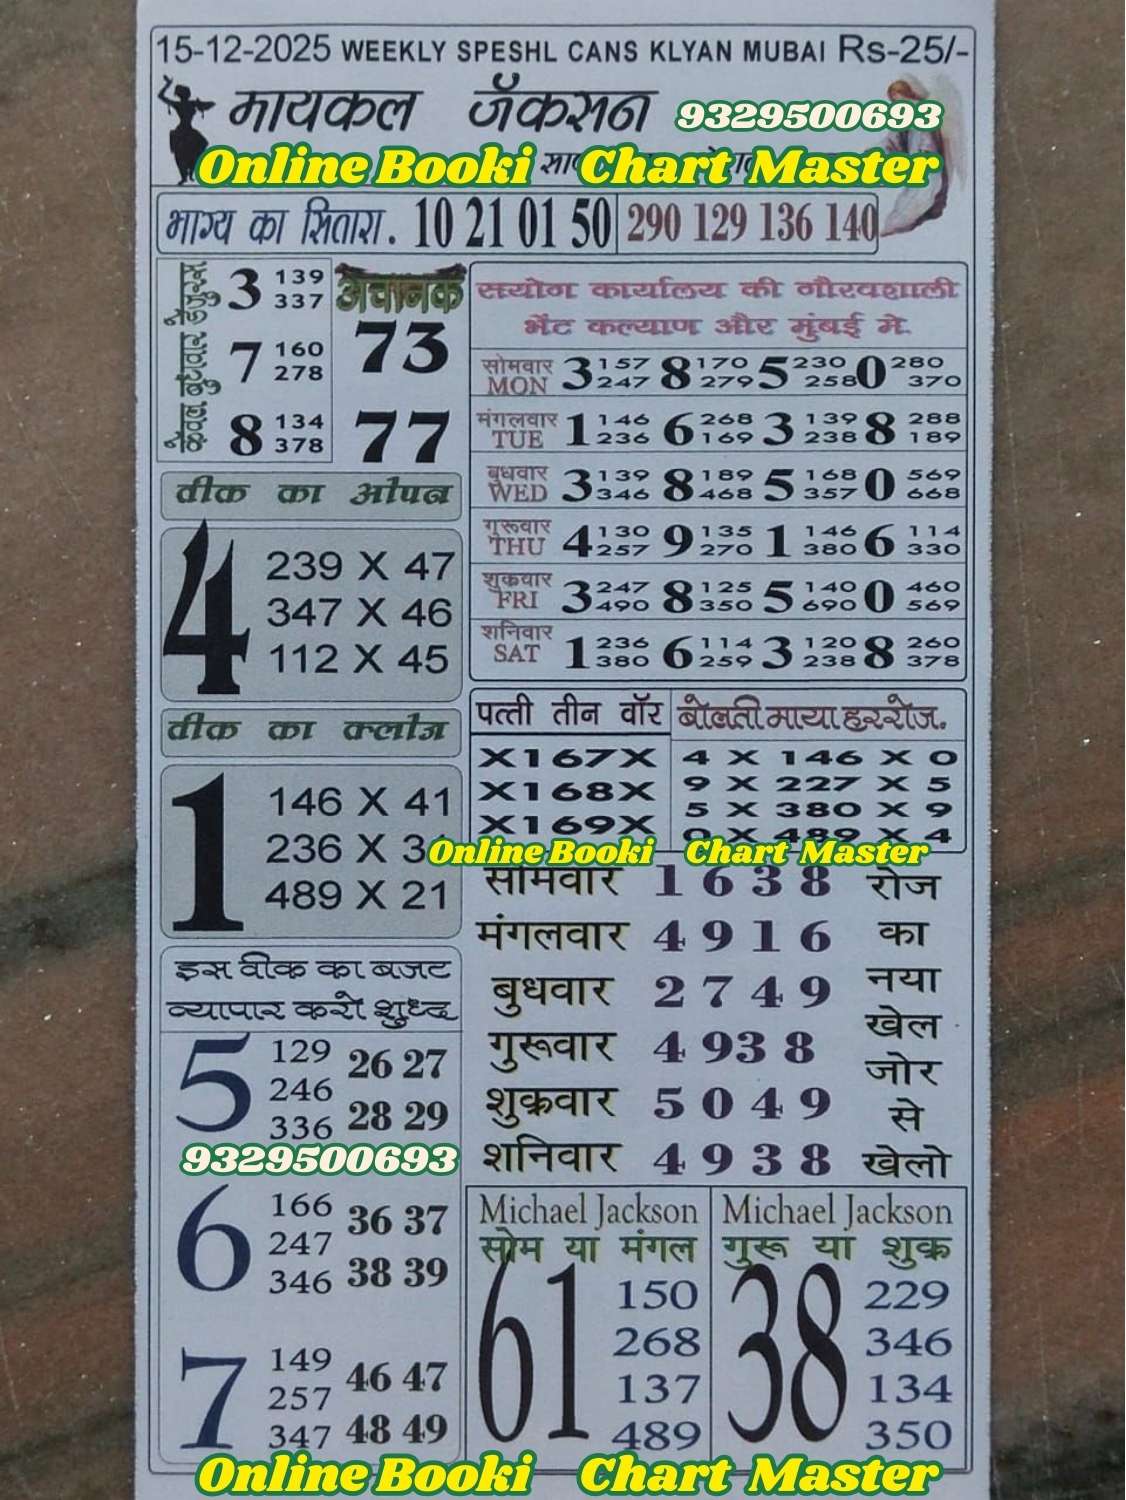 15-12-2025 WEEKLY SPESHL CANS KLYAN MUBAI Rs-25/-
मायकल जॅकसन 9329500693
Online Booki Chart Master
भाग्य का सितारा. 10 21 01 50 290 129 136 140
3 139 337
7 160 278
8 134 378
अचानक
73
77
संयोग कार्यालय की गौरवशाली
भेंट कल्याण और मुंबई मे.
सोमवार MON 3 157 247 8 170 279 5 230 258 0 280 370
मंगलवार TUE 1 146 236 6 268 169 3 139 238 8 288 189
बुधवार WED 3 139 346 8 189 468 5 168 357 0 569 668
गुरूवार THU 4 130 257 9 135 270 1 146 380 6 114 330
शुक्रवार FRI 3 247 490 8 125 350 5 140 690 0 460 569
शनिवार SAT 1 236 380 6 114 259 3 120 238 8 260 378
वीक का ओपन
4
239 X 47
347 X 46
112 X 45
वीक का क्लोज
1
146 X 41
236 X 3
489 X 21
पत्ती तीन वॉर
X167X
X168X
X169X
बोलती माया हररोज.
4 X 146 X 0
9 X 227 X 5
5 X 380 X 9
0 X 489 X 4
Online Booki Chart Master
सोमवार 1 6 3 8
मंगलवार 4 9 1 6
बुधवार 2 7 4 9
गुरूवार 4 9 3 8
शुक्रवार 5 0 4 9
शनिवार 4 9 3 8
रोज
का
नया
खेल
जोर
से
खेलो
इस वीक का बजट
व्यापार करो शुध्द
5
129 26 27
246
336 28 29
9329500693
6
166 36 37
247
346 38 39
7
149 46 47
257
347 48 49
Michael Jackson
सोम या मंगल
61
150
268
137
489
Michael Jackson
गुरू या शुक्र
38
229
346
134
350
Online Booki Chart Master